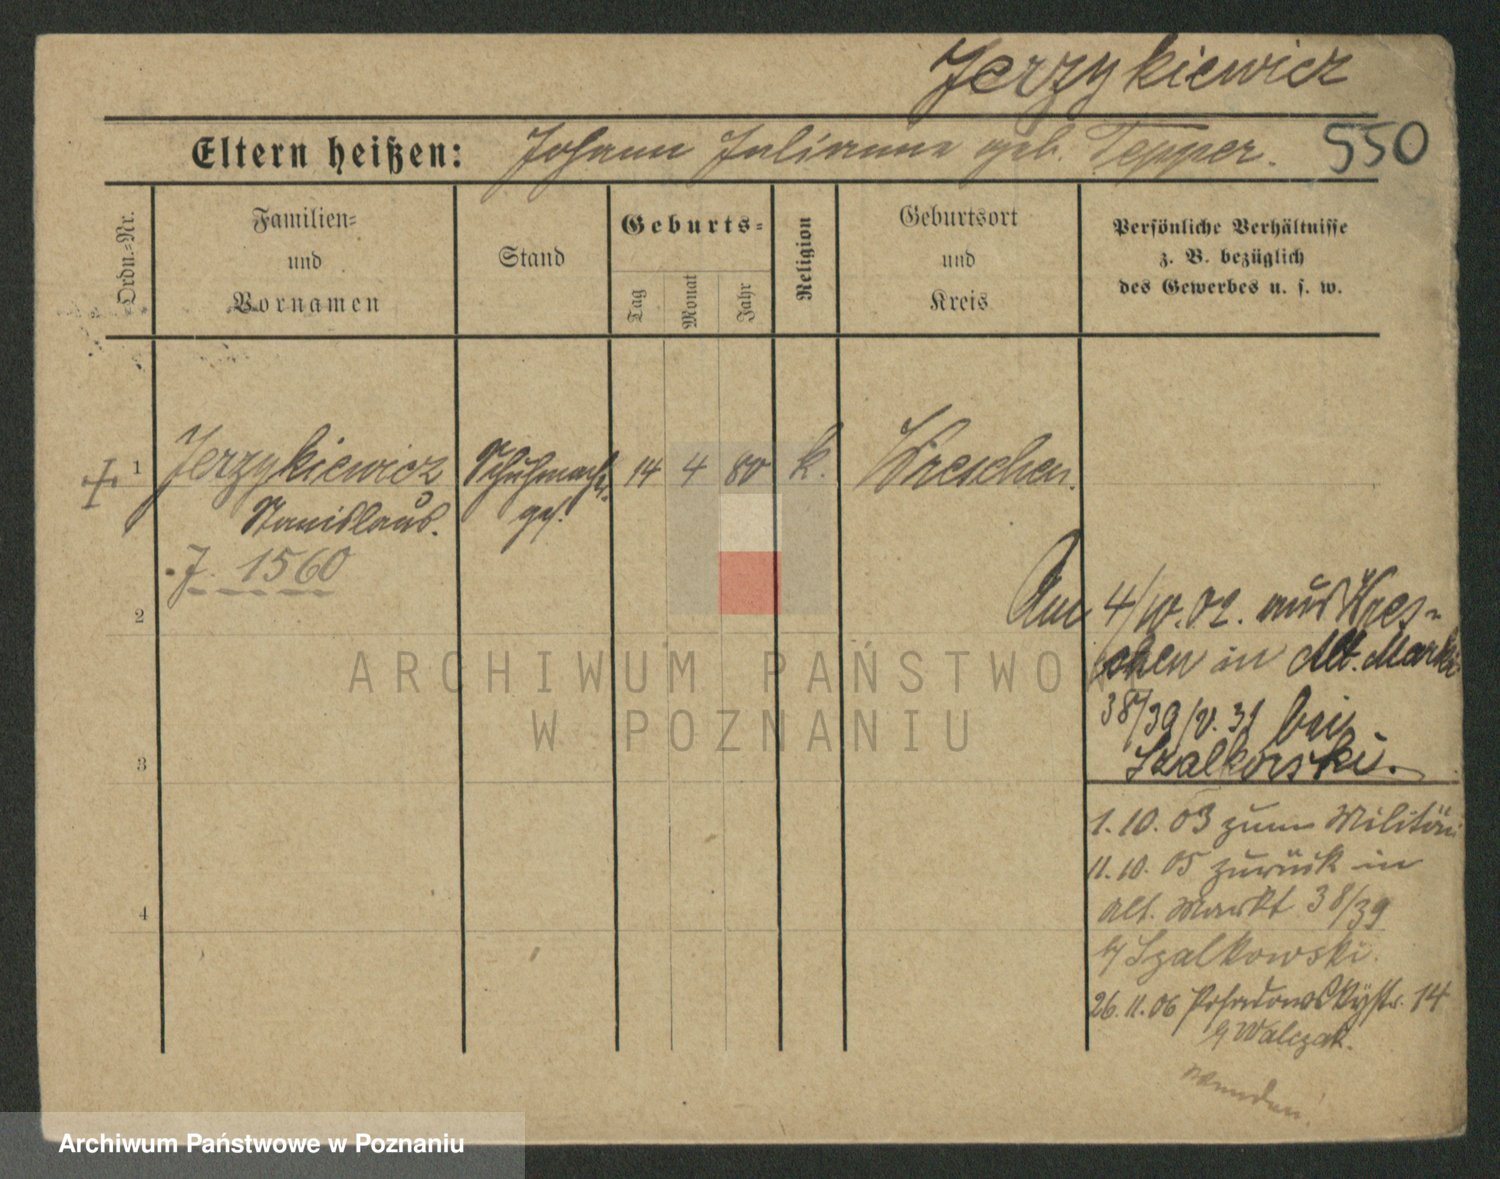 Jerzykiewicz
Eltern heißen: Johann Julianna geb. Tepper.
550
Ordn.=Nr.
Familien=
und
Vornamen
Stand
Geburts=
Tag
Monat
Jahr
Religion
Geburtsort
und
Kreis
Persönliche Verhältnisse
z. B. bezüglich
des Gewerbes u. s. w.
1 Jerzykiewicz Schuhmacher 14 4 80 k. Wreschen.
Stanislaus. ges.
J. 1560
2
Am 4/10.02. aus Wres-
chen in Alt. Markt
38/39/V. 3l bei
Szalkowski.
3
1. 10. 03 zum Militär
11. 10. 05 zurück in
Alt. Markt 38/39
b/ Szalkowski.
4
26. 11. 06 Posadowskystr. 14
b/ Walczak.
wenden!
ARCHIWUM PAŃSTWOW
W POZNANIU
Archiwum Państwowe w Poznaniu